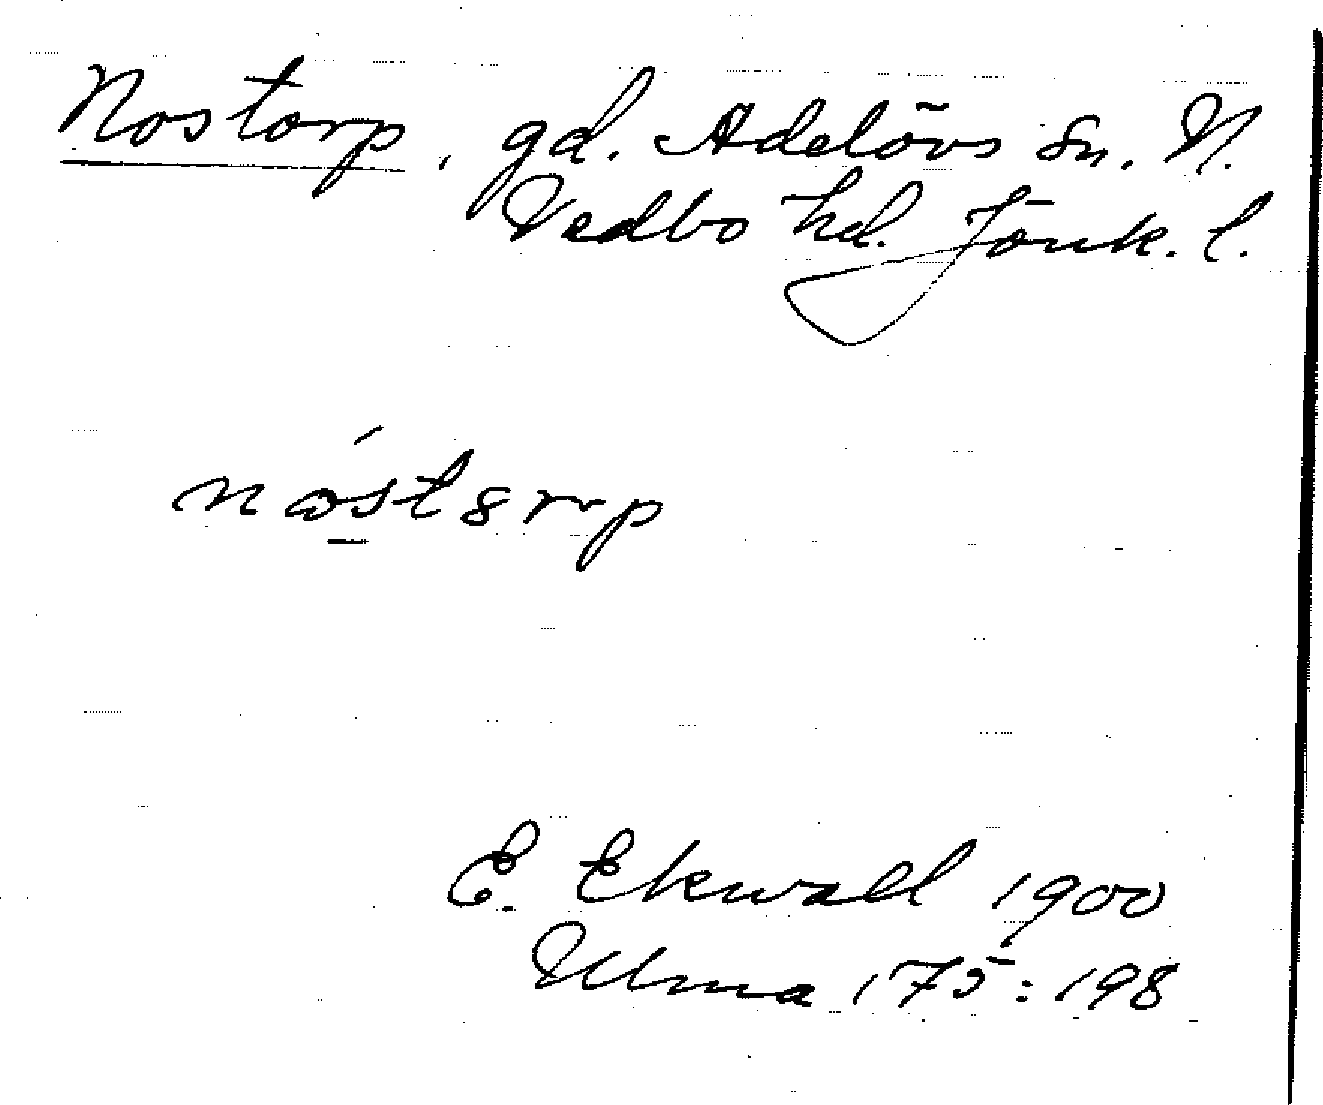 Nostorp, gd. Adelövs sn. N.
Vedbo hd. Jönk. l.
E. Ekwall 1900
Ulma 175:198